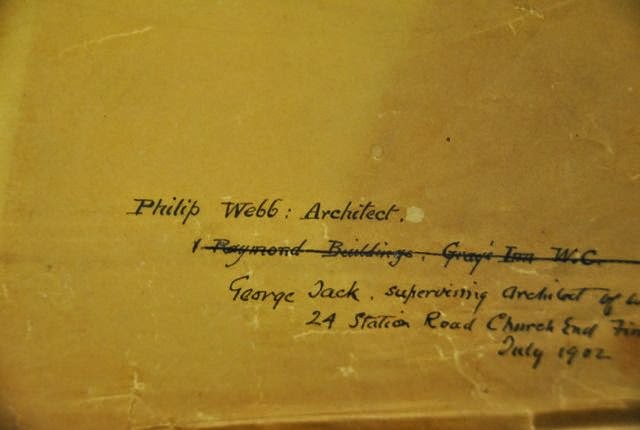 Philip Webb: Architect.
1 Raymond Buildings. Gray's Inn W.C.
George Jack. supervising architect of
24 Station Road Church End Fin
July 1902